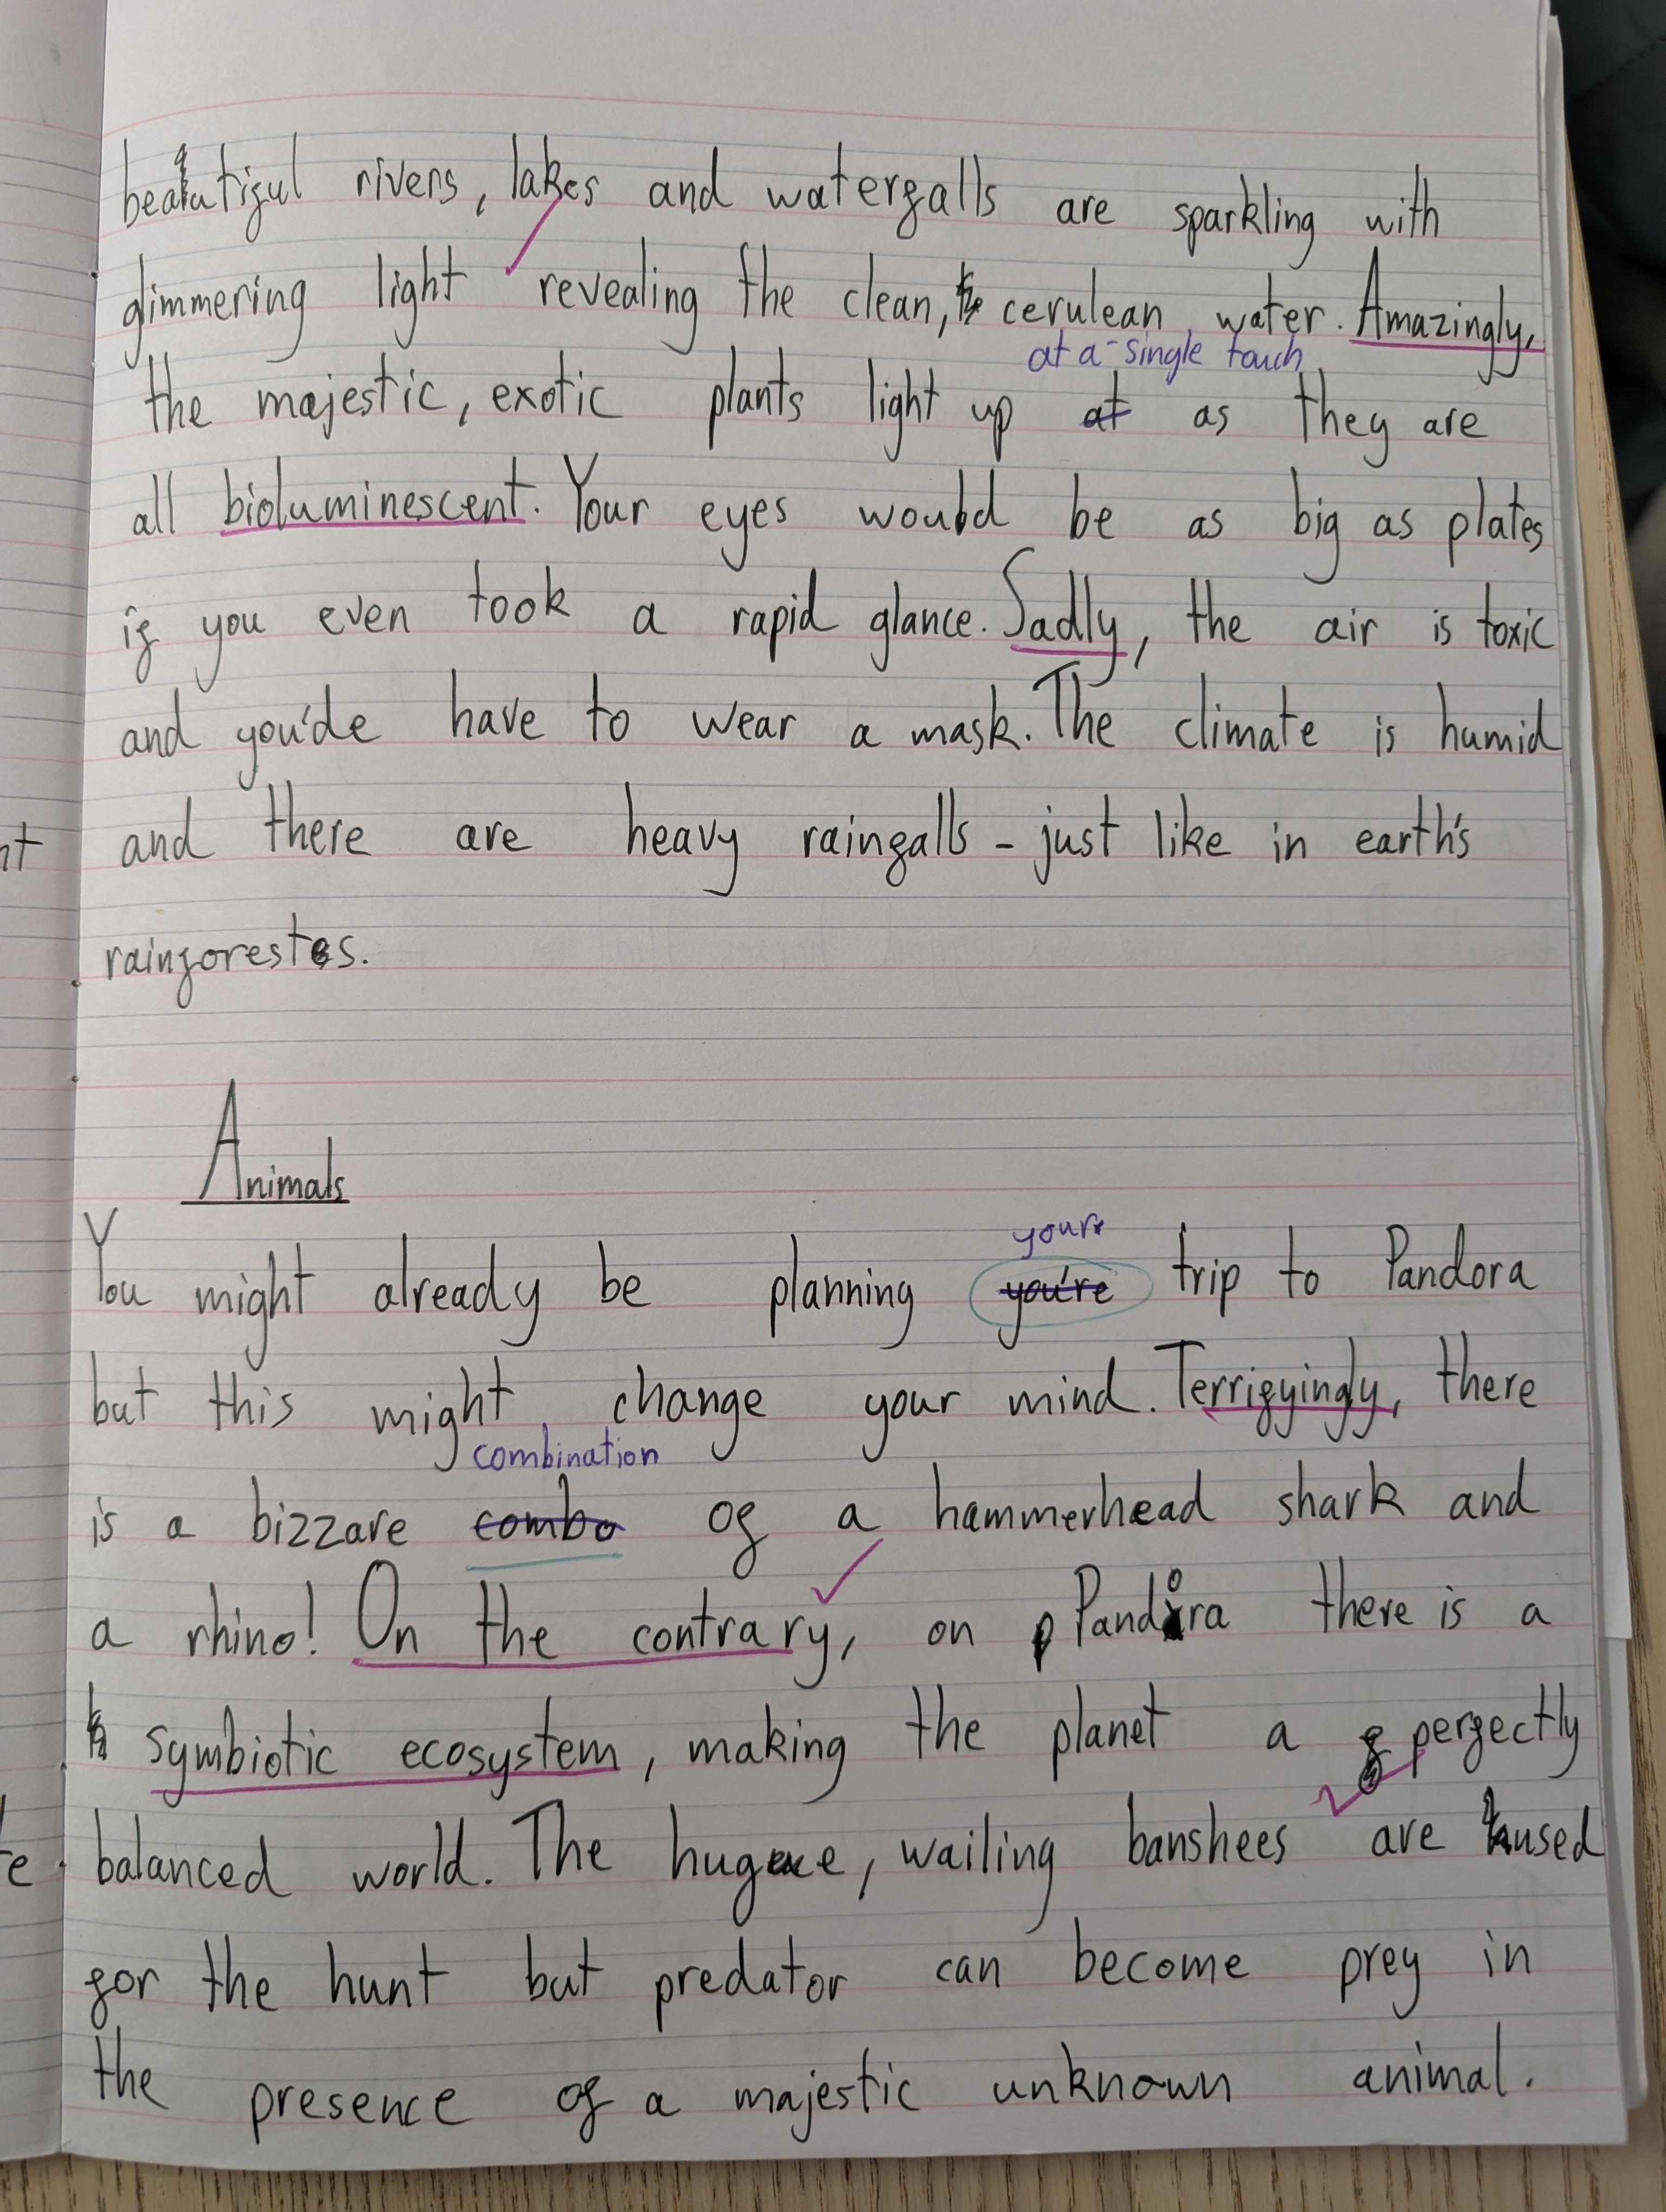 beautiful rivers, lakes and waterfalls are sparkling with
glimmering light revealing the clean, cerulean water. Amazingly,
at a single touch
the majestic, exotic plants light up at as they are
all bioluminescent. Your eyes would be as big as plates
if you even took a rapid glance. Sadly, the air is toxic
and you'de have to wear a mask. The climate is humid
and there are heavy rainfalls - just like in earth's
rainforests.
Animals
your
You might already be planning you're trip to Pandora
but this might change your mind. Terrifyingly, there
combination
is a bizzare combo of a hammerhead shark and
a rhino! On the contrary, on Pandora there is a
symbiotic ecosystem, making the planet a perfectly
balanced world. The huge, wailing banshees are used
for the hunt but predator can become prey in
the presence of a majestic unknown animal.